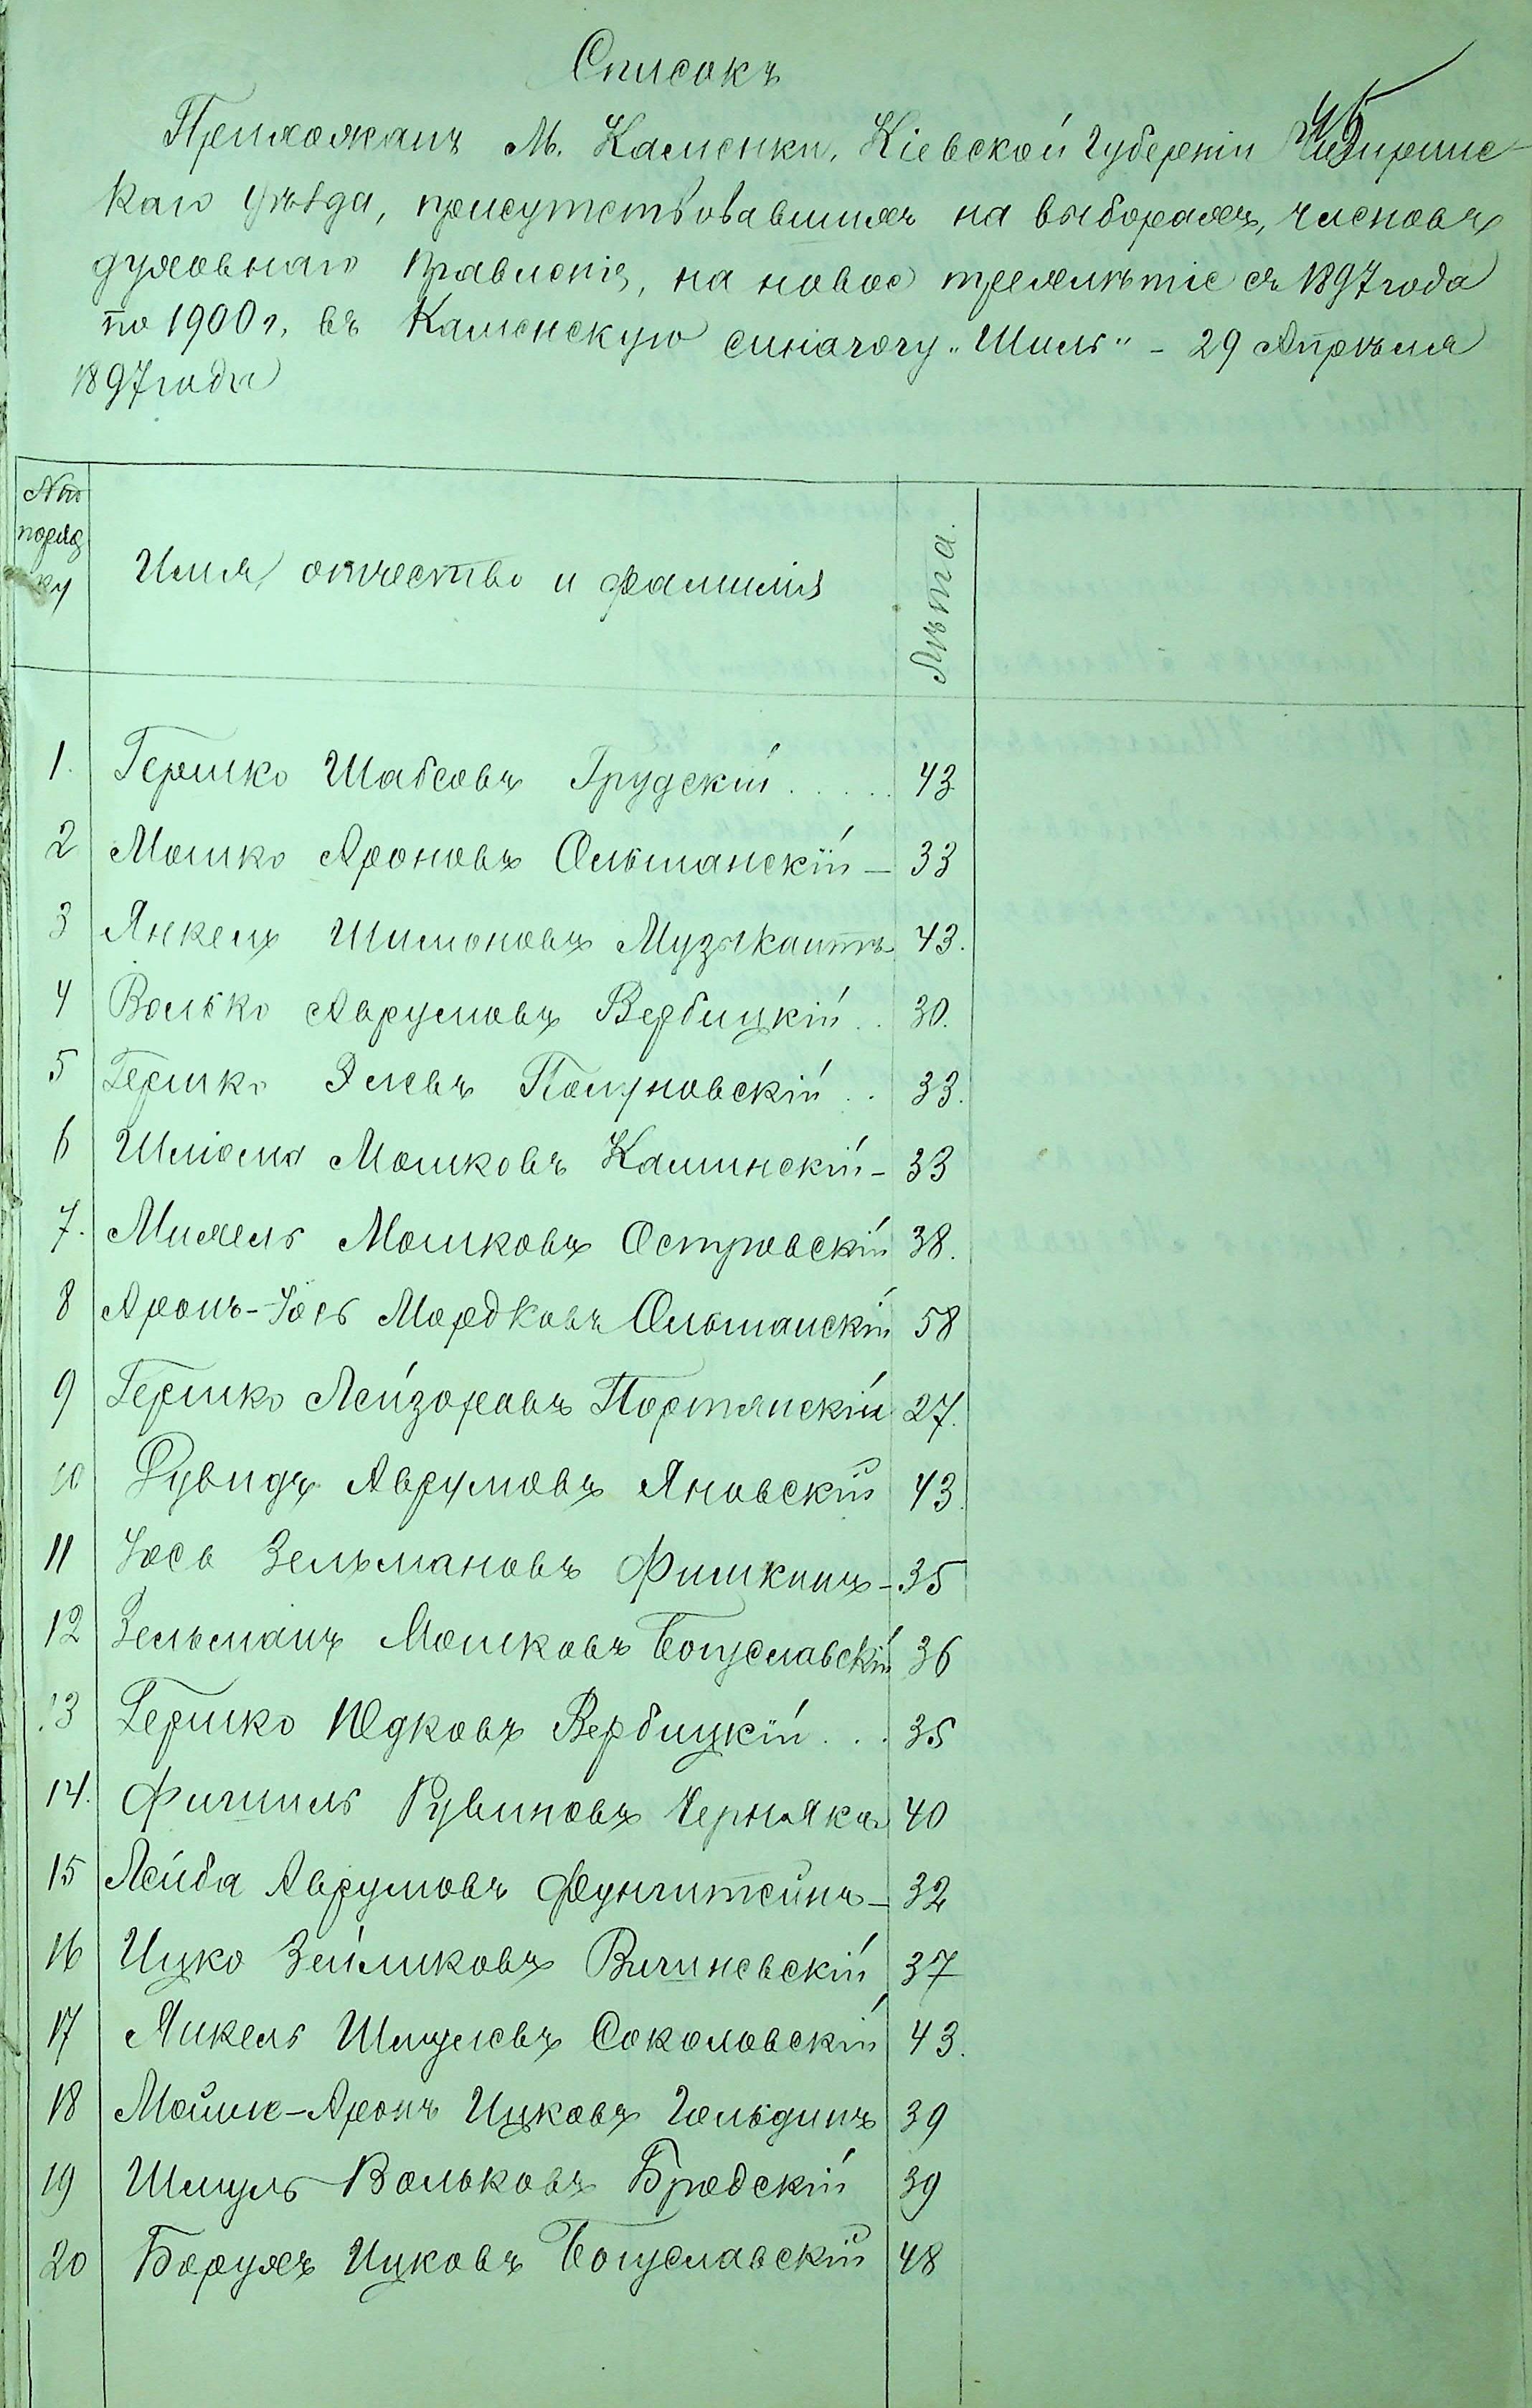 Списокъ
Прихожанъ М. Каменки, Кіевской губерніи Чигиринс-
каго уѣзда, присутствовавшихъ на выборахъ, членовъ
духовнаго правленія, на новое трехлѣтіе съ 1897 года
по 1900 г. въ Каменскую синагогу „Шиль" - 29 Апрѣля
1897 года
№ по
поряд
ку
Имя, отчество и фамилія
Лѣта.
1. Гершко Шабсовъ Грудскій ..... 43
2 Мошко Ароновъ Ольшанскій — 33
3 Янкель Шимоновъ Музыкантъ 43.
4 Волько Аврумовъ Вербицкій .. 30.
5 Гершко Элевъ Полуновскій .. 33.
6 Шліома Мошковъ Каминскій - 33
7. Михель Мошковъ Островскій 38.
8 Аронъ-Іось Мордковъ Ольшанскій 58
9 Гершко Лейзоровъ Портянскій 27.
10 Дувидъ Аврумовъ Яновскій 43.
11 Іось Зельмановъ Фишкинъ - 35
12 Зельманъ Мошковъ Богуславскій 36
13 Гершко Юдковъ Вербицкій ... 35
14. Фишиль Рувиновъ Чернякъ 40
15 Лейба Аврумовъ Фунштейнъ — 32
16 Ицко Зейликовъ Вишневскій 37
17 Янкель Шмулевъ Соколовскій 43.
18 Мойше-Аронъ Ицковъ Гольдинъ 39
19 Шмуль Вольковъ Бродскій 39
20 Борухъ Ицковъ Богуславскій 48